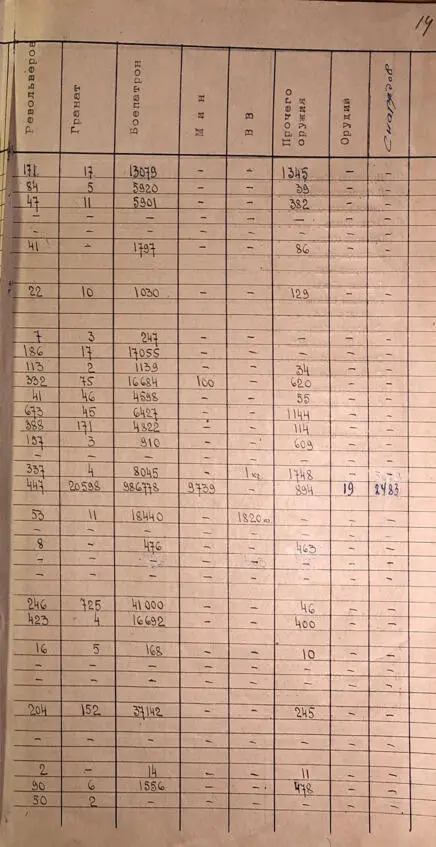 14
Револьверов Гранат Боепатрон Мин ВВ Прочего оружия Орудий Снарядов
171 17 13079 - - 1345 - -
84 5 5920 - - 39 - -
47 11 5901 - - 382 - -
- - - - - - - -
- - - - - - - -
41 - 1797 - - 86 - -
22 10 1030 - - 129 - -
7 3 247 - - - - -
186 17 17055 - - - - -
113 2 1139 - - 34 - -
332 75 16684 100 - 620 - -
41 46 4898 - - 55 - -
673 45 6427 - - 1144 - -
388 171 4822 - - 114 - -
197 3 910 - - 609 - -
- - - - - - - -
337 4 8045 - 1 кг. 1748 -
447 20598 986778 9739 - 894 19 2483
53 11 18440 - 1820 кг - - -
8 - 476 - - 463 - -
- - - - - - - -
- - - - - - - -
246 725 41000 - - 46 - -
423 4 16692 - - 400 - -
16 5 168 - - 10 - -
- - - - - - - -
- - - - - - - -
204 152 37142 - - 245 - -
- - - - - - - -
2 - 14 - - 11 - -
90 6 1556 - - 478 - -
50 2 - - - - - -